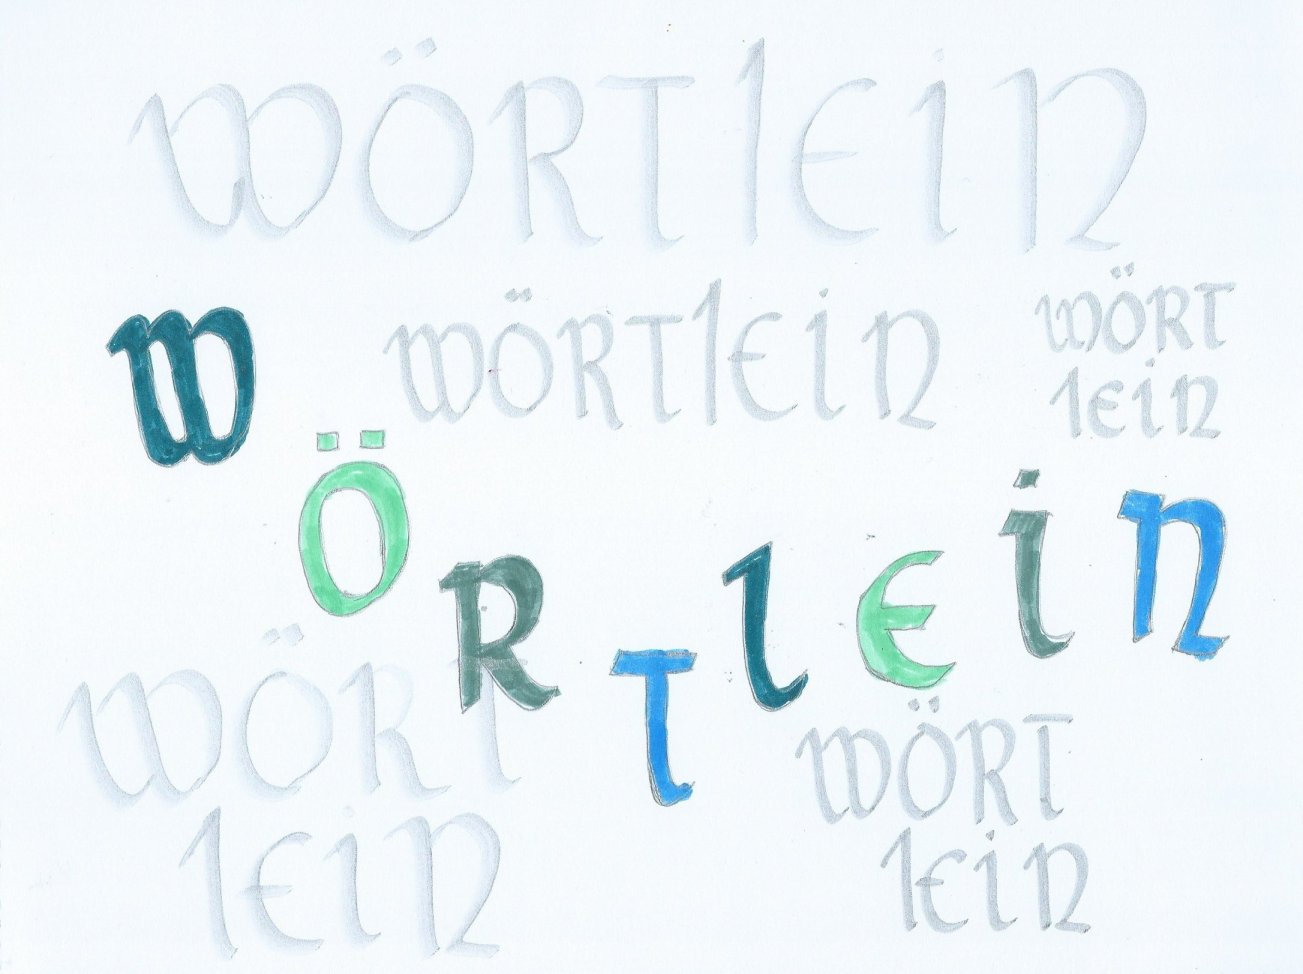 WÖRTlEiN
WÖRTlEiN
WÖRT
lEiN
WÖRTlEiN
WÖRT
lEiN
WÖRT
lEiN